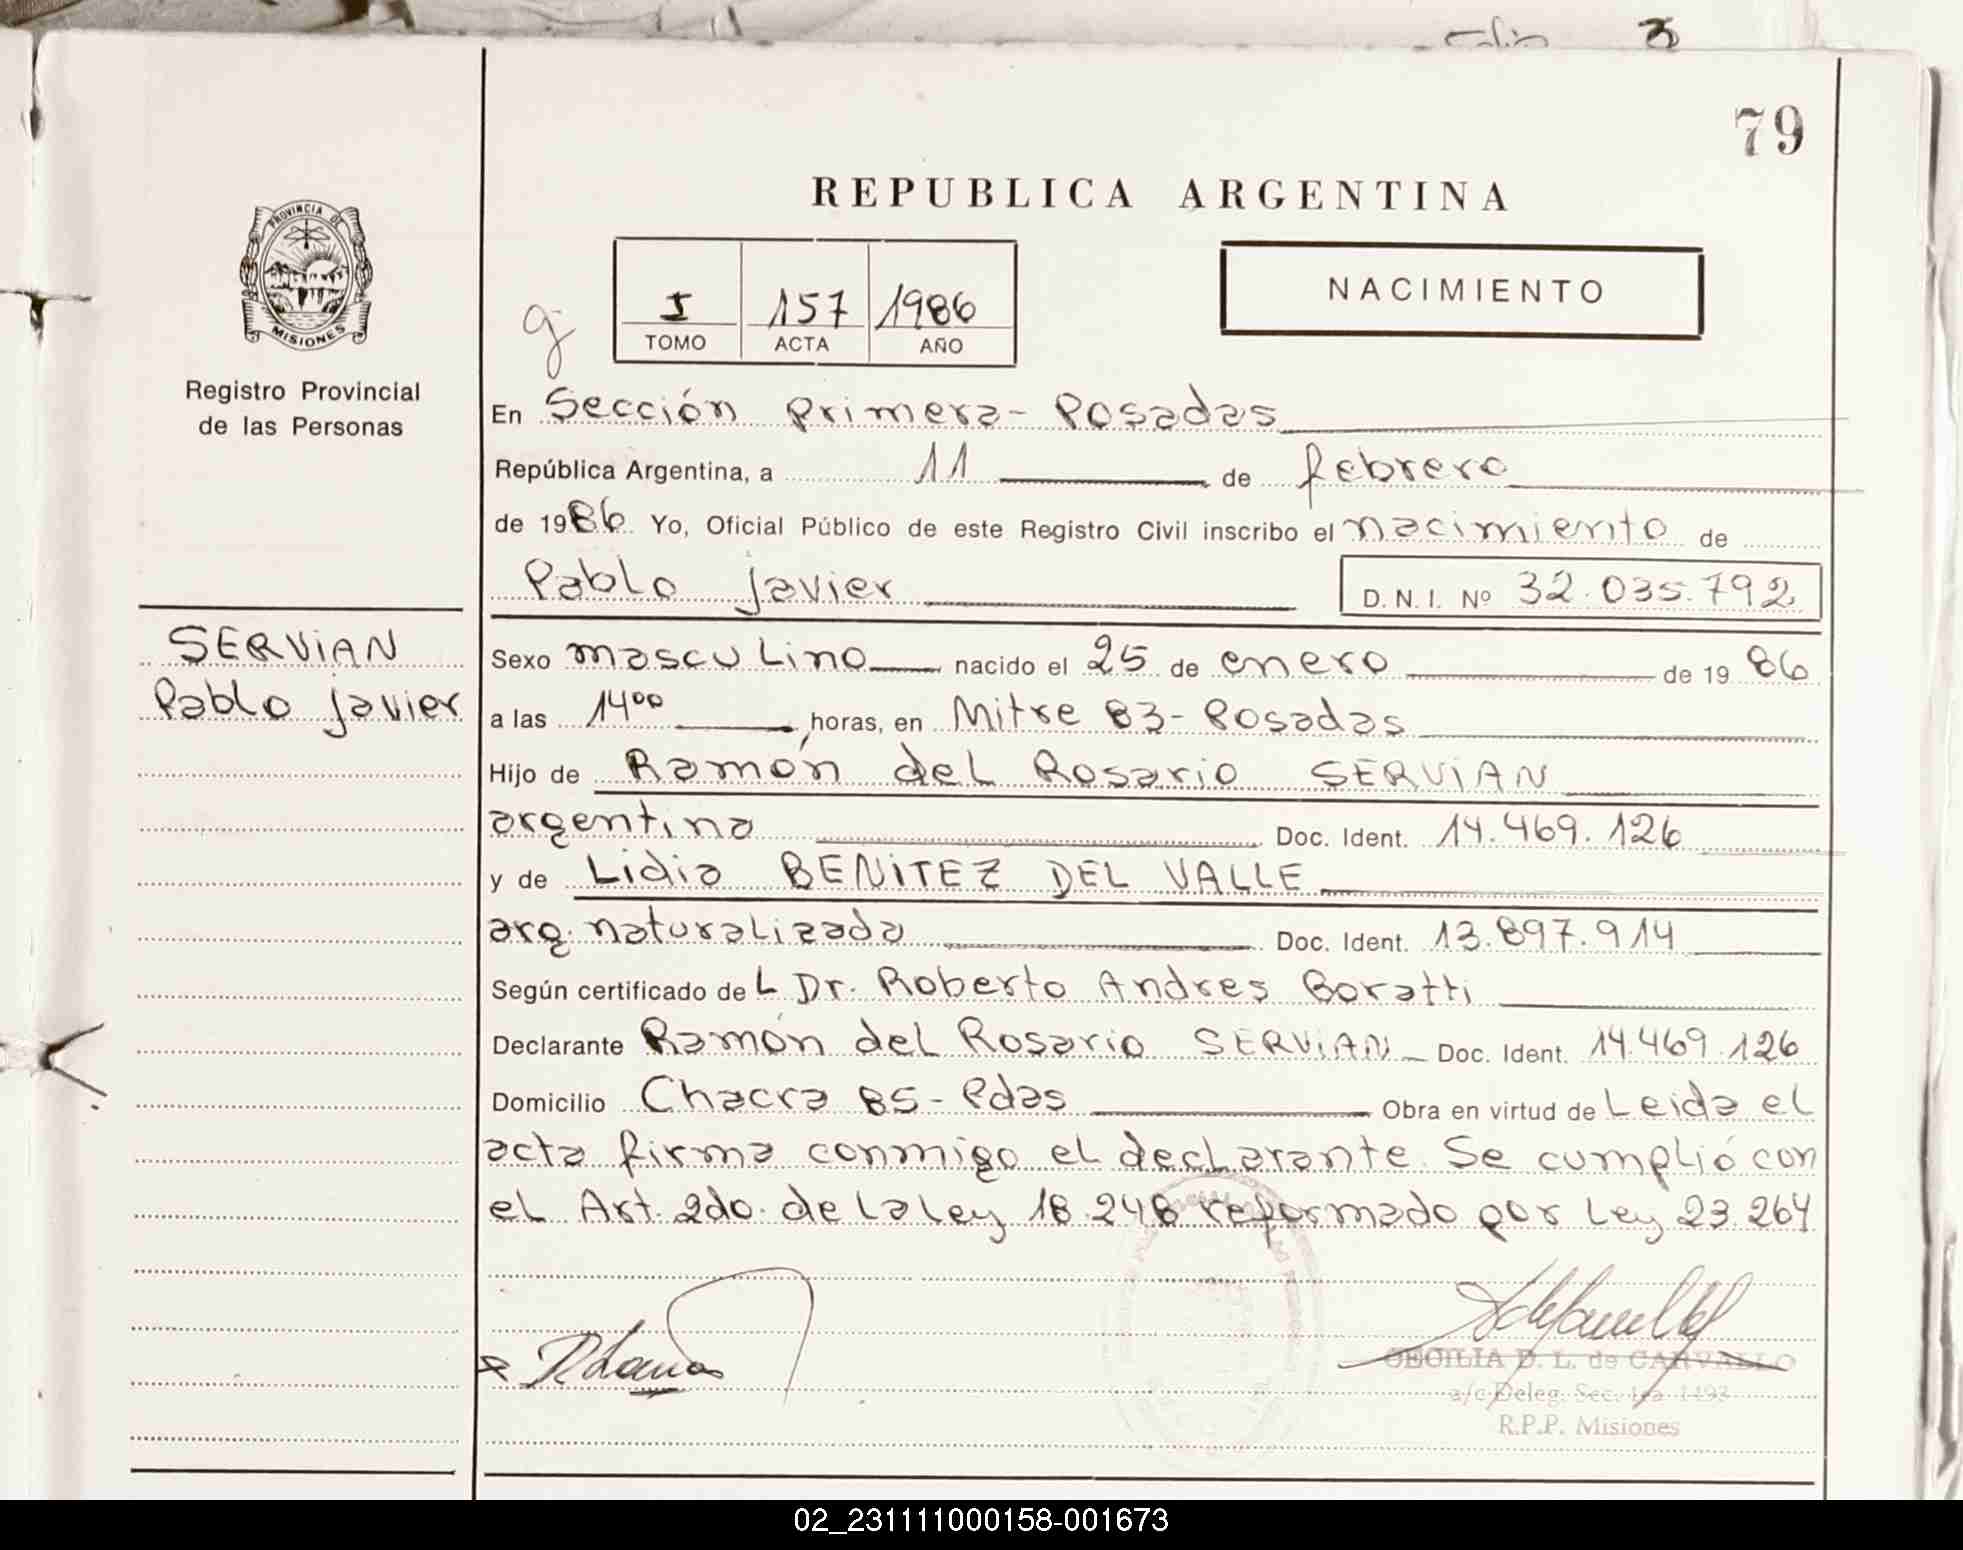 Folio 3
79
REPUBLICA ARGENTINA
PROVINCIA DE
MISIONES
Registro Provincial
de las Personas
I 157 1986
TOMO ACTA AÑO
NACIMIENTO
En Sección Primera - Posadas
República Argentina, a 11 de febrero
de 1986 Yo, Oficial Público de este Registro Civil inscribo el nacimiento de
Pablo Javier D.N.I. Nº 32.035.792
SERVIAN
Pablo Javier
Sexo masculino nacido el 25 de enero de 1986
a las 14 00 horas, en Mitre 83 - Posadas
Hijo de Ramón del Rosario SERVIAN
argentina Doc. Ident. 14.469.126
y de Lidia BENITEZ DEL VALLE
arg. naturalizada Doc. Ident. 13.897.914
Según certificado del Dr. Roberto Andres Boratti
Declarante Ramón del Rosario SERVIAN Doc. Ident. 14.469.126
Domicilio Chacra 85 - Pdas Obra en virtud de Leida el
acta firma conmigo el declarante. Se cumplió con
el Art. 2do. de la Ley 18.248 reformado por Ley 23.264
CECILIA D. L. de CARVALLO
a/c Deleg. Sec. 1ra 1493
R.P.P. Misiones
02_231111000158-001673